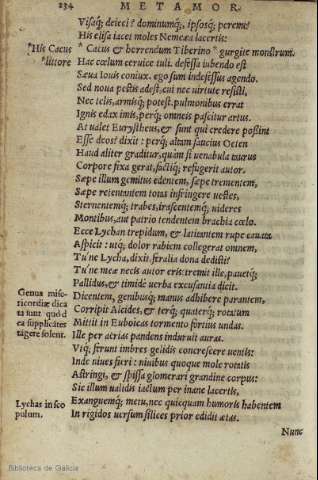 234 METAMOR.
Visaq; deieci? dominumq;, ipsosq; peremi?
His elisa iacet moles Nemeæa lacertis:
*His Cacus
* Cacus & horrendum Tiberino * gurgite monstrum.
*littore
Hac cœlum ceruice tuli. defessa iubendo est
Sæua Iouis coniux. ego sum indefessus agendo.
Sed noua pestis adest, cui nec uirtute resisti,
Nec telis, armisq; potest. pulmonibus errat
Ignis edax imis, perq; omneis pascitur artus.
At ualet Eurystheus, & sunt qui credere possint
Esse deos? dixit: perq; altum saucius Oeten
Haud aliter graditur, quàm si uenabula taurus
Corpore fixa gerat, factiq; refugerit autor.
Sæpe illum gemitus edentem, sæpe frementem,
Sæpe retentantem totas infringere uestes,
Sternentemq; trabes, irascentemq; uideres
Montibus, aut patrio tendentem brachia cœlo.
Ecce Lychan trepidum, & latitantem rupe cauata
Aspicit: utq; dolor rabiem collegerat omnem,
Tu'ne Lycha, dixit, feralia dona dedisti?
Tu'ne meæ necis autor eris? tremit ille, pauetq;
Pallidus, & timidè uerba excusantia dicit.
Genua misericordiæ dicata sunt quod ea supplicates tãgere solent.
Dicentem, genibusq; manus adhibere parantem,
Corripit Alcides, & terq; quaterq; rotatum
Mittit in Euboicas tormento fortius undas.
Ille per aërias pendens induruit auras.
Vtq; ferunt imbres gelidis concrescere uentis:
Inde niues fieri: niuibus quoque molle rotatis
Astringi, & spissa glomerari grandine corpus:
Sic illum ualidis iactum per inane lacertis,
Lychas in scopulum.
Exanguemq; metu, nec quicquam humoris habentem
In rigidos uersum silices prior edidit ætas.
Nunc
Biblioteca de Galicia